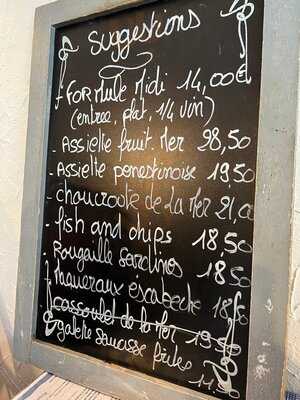 Suggestions
- FORMULE Midi 14,00€
(entrée, plat, 1/4 vin)
- Assiette fruit. Mer 28,50
- Assiette penestinoise 19,50
- choucroute de la Mer 21,00
- fish and chips 18,50
- Rougaille sardines 18,50
- Maqueraux escabeche 18,50
- cassoulet de la mer 19,50
- galette saucisse frites 11.50